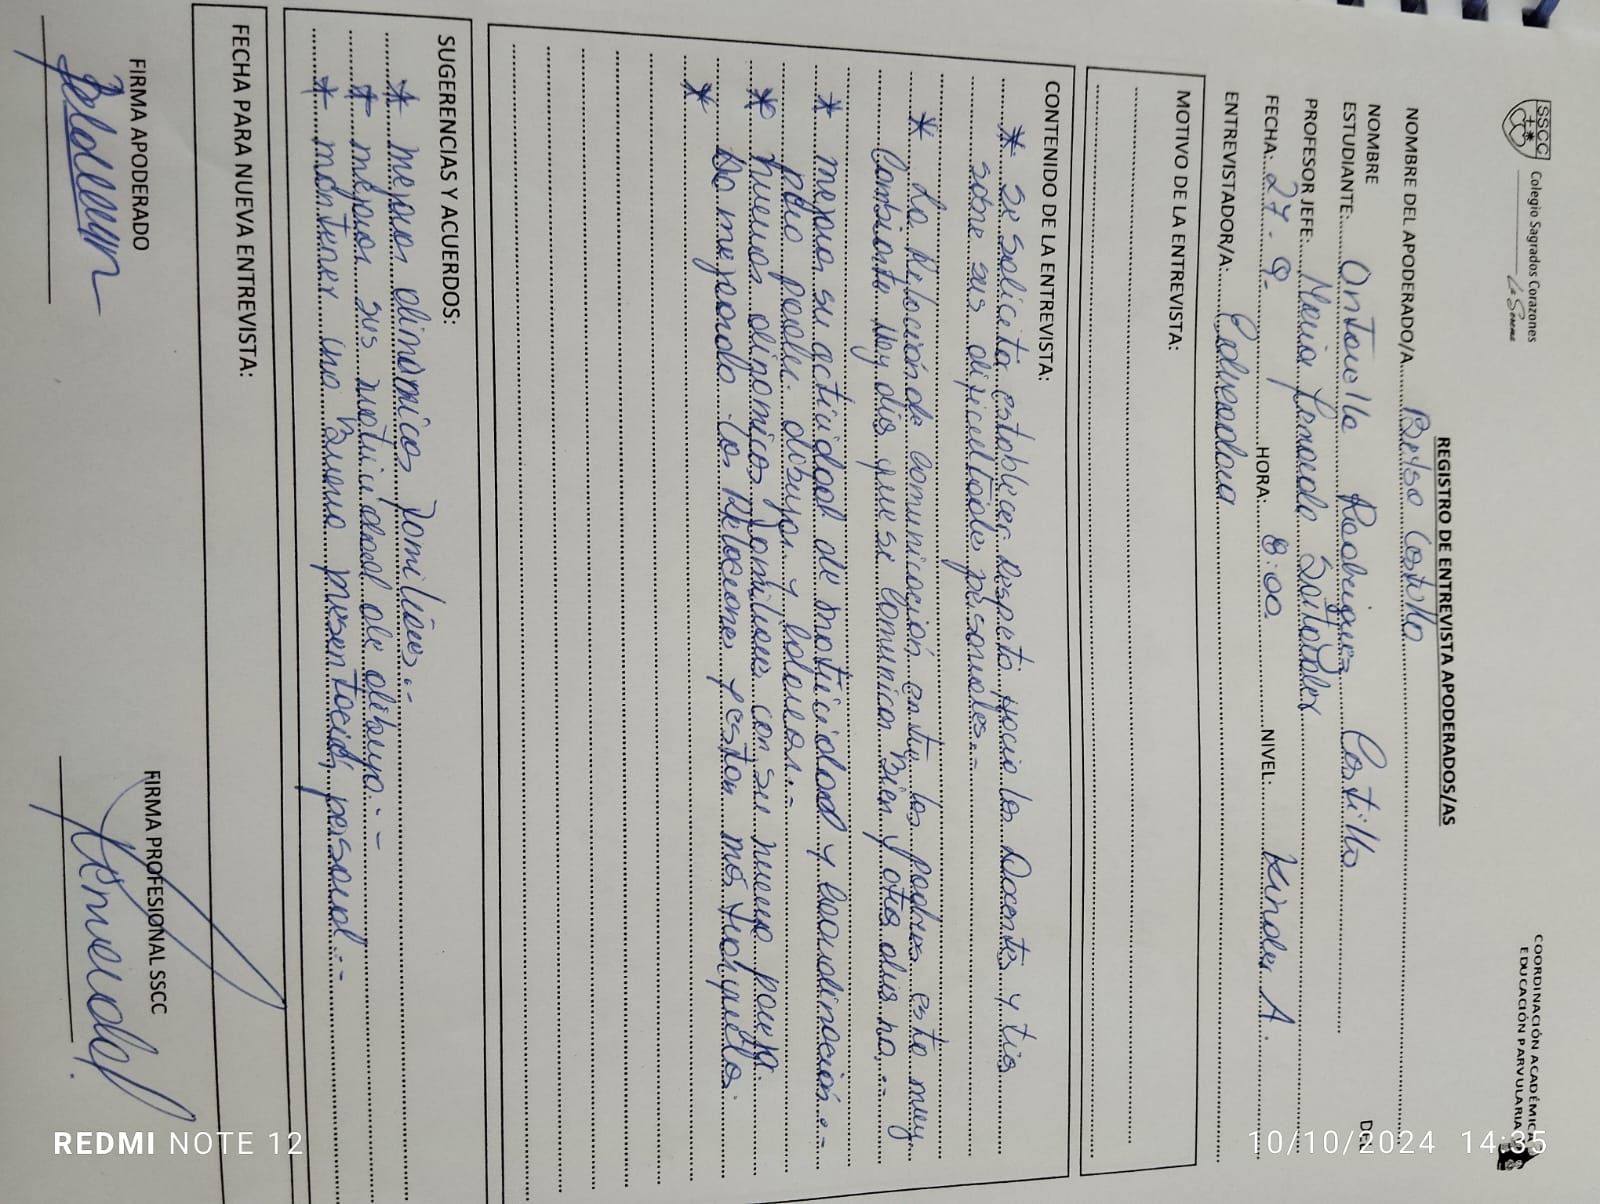 SSCC
Colegio Sagrados Corazones
La Serena
COORDINACIÓN ACADÉMICA
EDUCACIÓN PARVULARIA
REGISTRO DE ENTREVISTA APODERADOS/AS
NOMBRE DEL APODERADO/A Betsa Castillo
NOMBRE DEL
ESTUDIANTE: Antonella Rodriguez Castillo
PROFESOR JEFE: Maria Fernanda
FECHA: 27-9- HORA: 8:00 NIVEL: Kinder A.
ENTREVISTADOR/A: Educadora
MOTIVO DE LA ENTREVISTA:
CONTENIDO DE LA ENTREVISTA:
* Se solicita establecer respeto hacia las Docentes y tias
sobre sus dificultades personales.-
* La Relación de comunicación entre los padres esta muy
Cambiante hay dias que se comunican Bien y otros dias no.-
* mejora su actividad de motricidad y coordinación.-
pide poder dibujar y colorear.-
* nuevas dinamicas familiares con su nueva pareja.
Ha mejorado las Relaciones y estan más tranquilos.
*
SUGERENCIAS Y ACUERDOS:
* mejorar dinamicas familiares.-
* mejorar sus motricidad de dibujo.-
* mantener una Buena presentación personal.-
FECHA PARA NUEVA ENTREVISTA:
FIRMA APODERADO
FIRMA PROFESIONAL SSCC
REDMI NOTE 12
10/10/2024 14:35